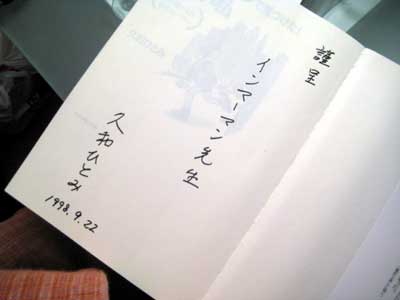 謹呈
インマーマン先生
久和ひとみ
1998.9.22